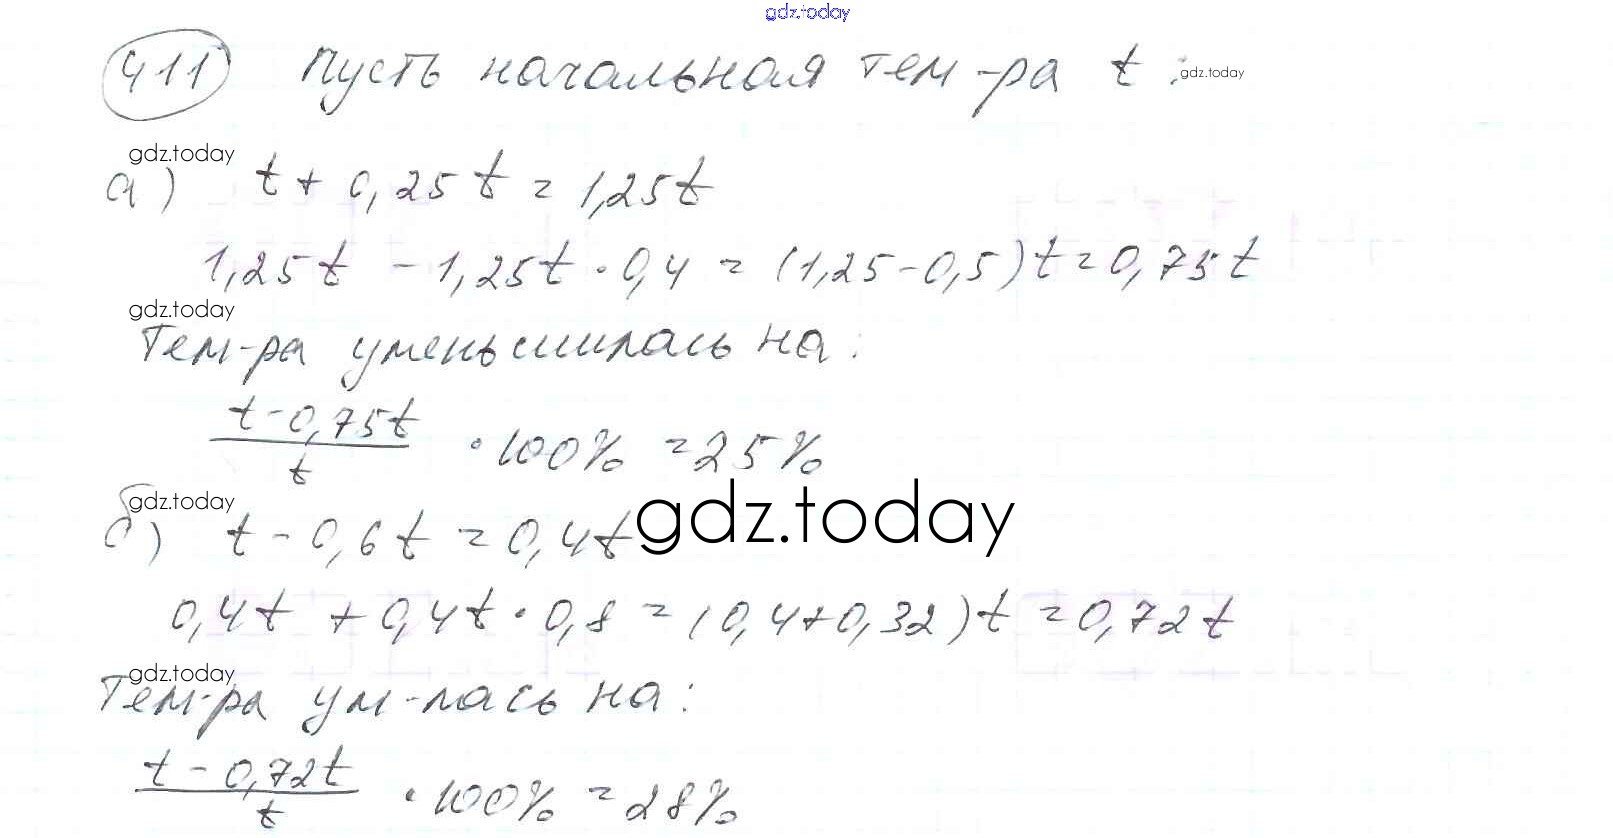 gdz.today
411 Пусть начальная тем-ра t :
gdz.today
gdz.today
а) t + 0,25t = 1,25t
1,25t - 1,25t · 0,4 = (1,25 - 0,5)t = 0,75t
gdz.today
Тем-ра уменьшилась на:
t - 0,75t
/ t · 100% = 25%
gdz.today
б) t - 0,6t = 0,4t
gdz.today
0,4t + 0,4t · 0,8 = (0,4 + 0,32)t = 0,72t
gdz.today
Тем-ра ум-лась на:
t - 0,72t
/ t · 100% = 28%